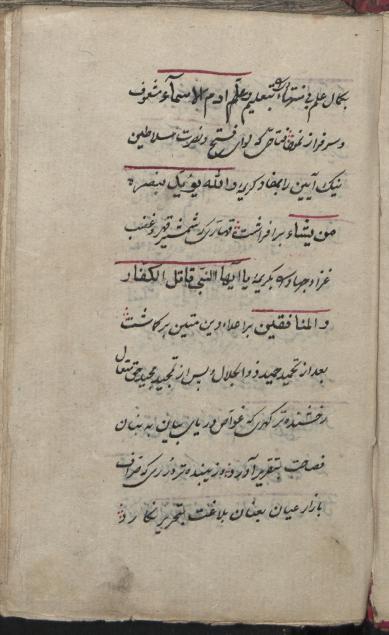 بکمال علم بی منتهای بتعلیم و علّم ادم الاسمآء مشعوف
و سرفراز نمود فتاحی که لوای فتح و نصرت سلاطین
نیک آیین را بمفاد کریمه والله یؤید بنصره
من یشاء برافراشت قهاری که شمشیر قهر و غضب
غزا و جهاد بکریمه یا ایها النبی قاتل الکفار
والمنافقین بر اعداء دین متین برگماشت
بعد از تحمید حمید ذوالجلال و پس از تمجید مجید حق متعال
رخشنده‌تر گهری که غواص دریای بیان به بنان
فصاحت بتقریر آورد و زیبنده‌تر دُرّی که صراف
بازار عیان بعنان بلاغت بتحریر نگارد